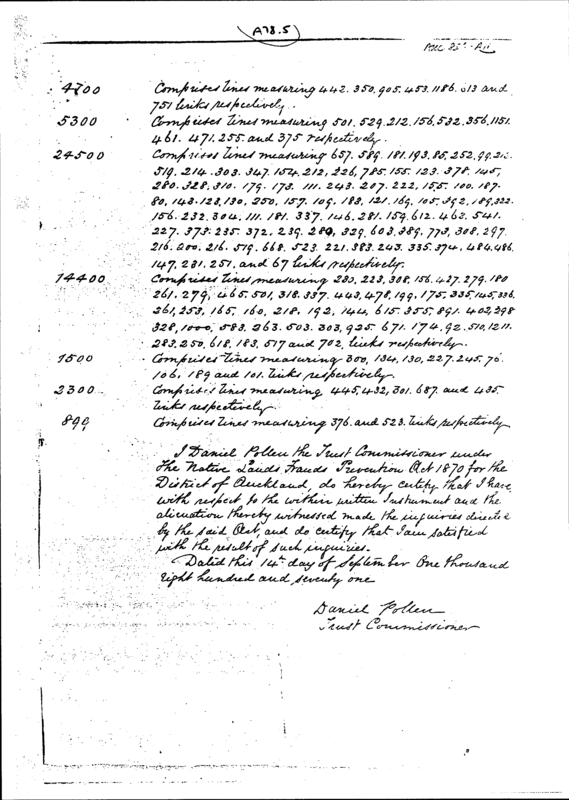 A78.5
4700 Comprises lines measuring 442. 350, 905. 453. 1186. 613 and
751 links respectively.
5300 Comprises lines measuring 501. 529. 212. 156, 532. 356, 1151.
461. 471. 255. and 375 respectively.
24500 Comprises lines measuring 657. 589. 181. 193. 85, 252. 99.
519. 214. 303. 347. 154. 212, 226, 785. 155. 123. 378. 145,
280. 328. 310. 179. 173. 111. 243. 207. 222, 155. 100. 187.
80, 143. 123, 130, 250, 157. 109. 183, 121. 169. 105. 392, 189, 322.
156. 232. 304. 111. 181. 337. 146. 281. 159. 612. 463. 541.
227. 373. 235. 372. 239. 280, 329. 603. 389, 773, 308. 297.
216. 200. 216. 519. 668. 523. 221. 383. 243. 335. 374, 484. 486.
147, 281. 251, and 67 links respectively.
14400 Comprises lines measuring 223, 308, 156. 427. 279. 180
261. 279, 465. 501, 318. 337. 443, 478, 199, 175. 335, 145, 336.
261, 253, 165, 160, 218. 192, 144, 615. 355, 891. 402, 298
328, 1000, 583. 263. 503. 303, 925. 671. 174. 92. 510, 1211.
283. 250, 618, 183, 517 and 702, links respectively.
1500 Comprises lines measuring 300, 134, 130, 227. 245, 76.
106, 189 and 101. links respectively.
2300 Comprises lines measuring 445, 432, 301. 687. and 435.
links respectively
899 Comprises lines measuring 376. and 523. links respectively
I Daniel Pollen the Trust Commissioner under
The Native Lands Frauds Prevention Act 1870 for the
District of Auckland, do hereby certify that I have
with respect to the within written Instrument and the
alienation thereby witnessed made the inquiries directed
by the said Act, and do certify that I am satisfied
with the result of such inquiries.
Dated this 14th day of September One thousand
eight hundred and seventy one
Daniel Pollen
Trust Commissioner